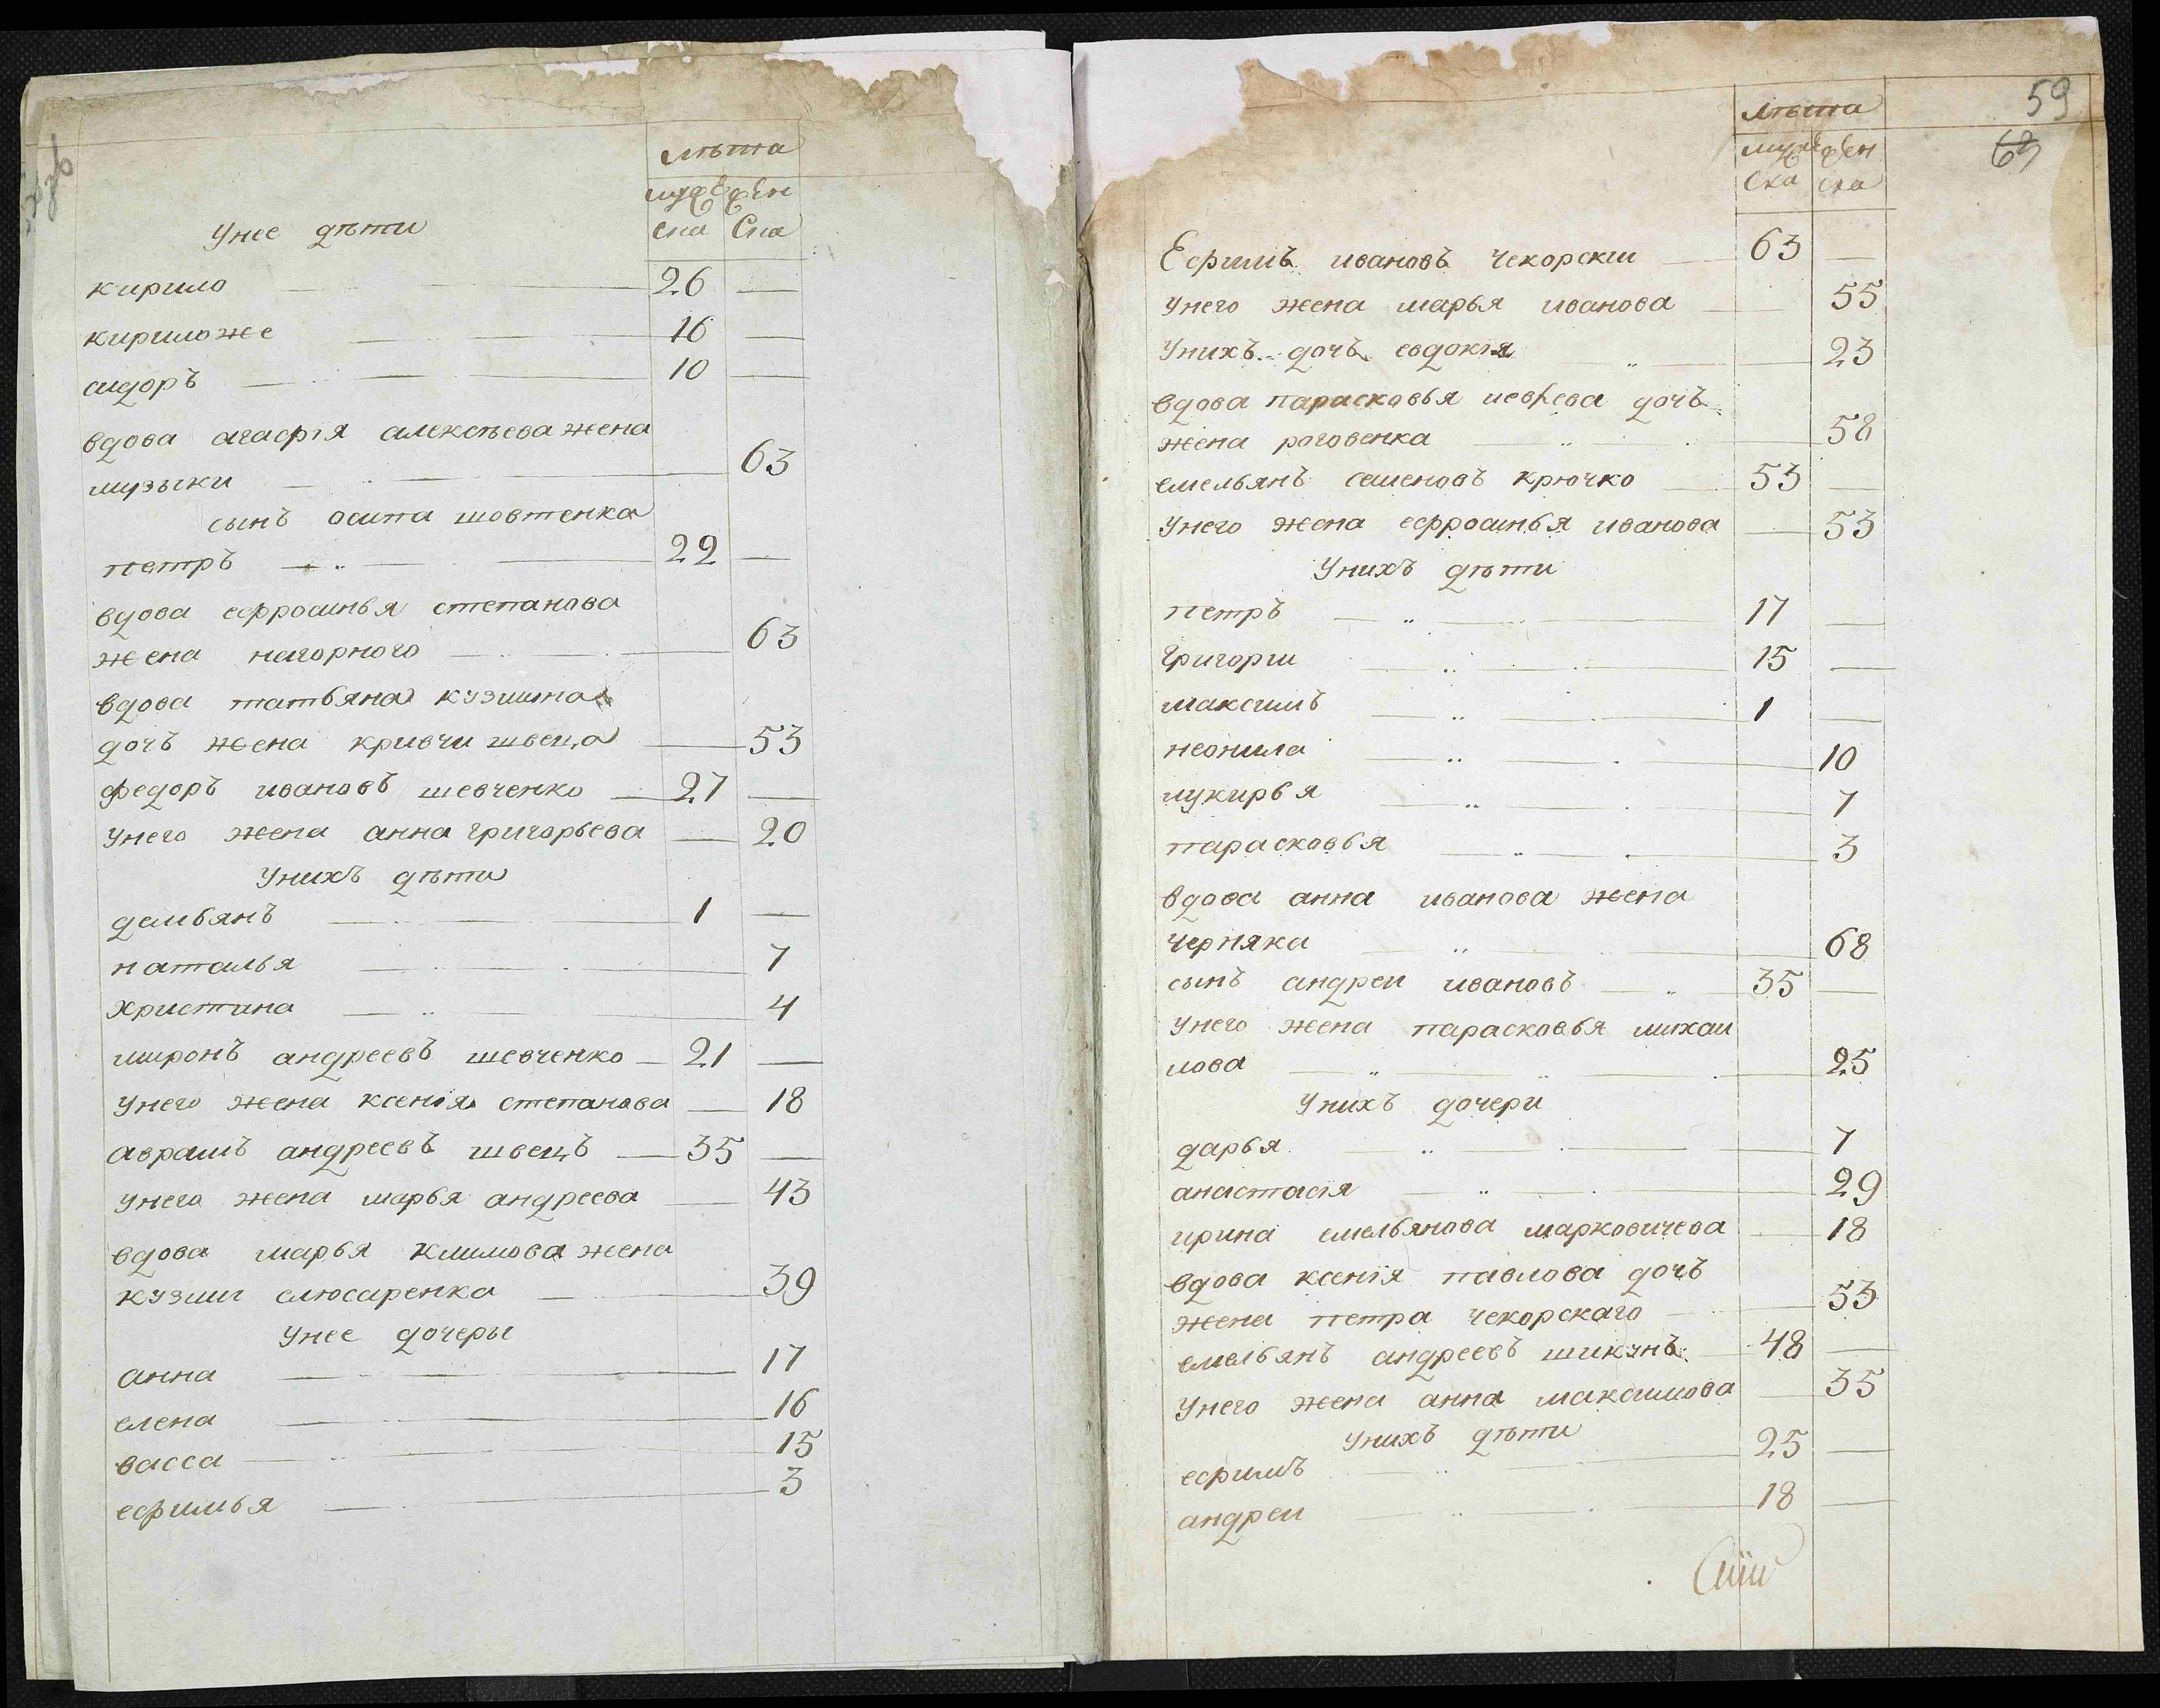 лѣта
мужеска женска
Унее дѣти
кирило 26 —
кириложе 16 —
сидоръ 10 —
вдова агафія алексѣева жена
музыки 63
сынъ осипа шовтенка
петръ 22 —
вдова ефросинья степанова
жена нагорного 63
вдова татьяна кузмина
дочь жена кривчи швеца 53
федоръ ивановъ шевченко 27 —
Унего жена анна григорьева 20
Унихъ дѣти
демьянъ 1 —
наталья 7
христина 4
миронъ андреевъ шевченко 21 —
Унего жена ксенія степанова 18
аврамъ андреевъ швецъ 35 —
Унего жена марья андреева 43
вдова марья климова жена
кузми слюсаренка 39
Унее дочеры
анна 17
елена 16
васса 15
ефимья 3
59
лѣта
мужеска женска
Ефимъ ивановъ чекорски 63 —
Унего жена марья иванова 55
Унихъ дочь евдокія 23
вдова парасковья дочь
жена роговенка 58
емельянъ семеновъ крючко 53 —
Унего жена ефросинья иванова 53
Унихъ дѣти
петръ 17 —
Григори 15 —
максимъ 1 —
неонила 10
лукирья 7
парасковья 3
вдова анна иванова жена
черняка 68
сынъ андреи ивановъ 35 —
Унего жена парасковья михаи
лова 25
Унихъ дочери
дарья 7
анастасія 29
ирина емельянова марковичева 18
вдова ксенія павлова дочь
жена петра чекорскаго 53
емельянъ андреевъ шикунъ 48 —
Унего жена анна максимова 35
Унихъ дѣти
ефимъ 25 —
андреи 18 —